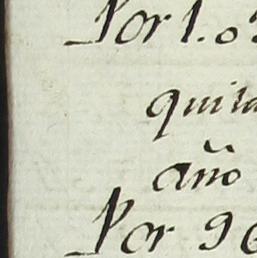 Por 1.0
quila
año
Por 96